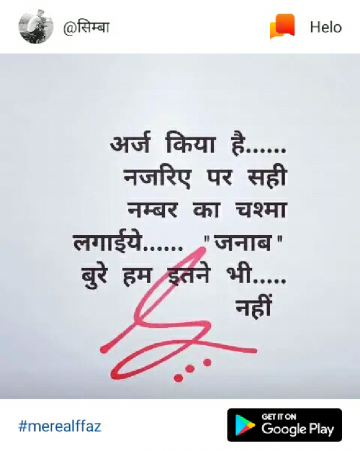 @सिम्बा
Helo
अर्ज किया है......
नजरिए पर सही
नम्बर का चश्मा
लगाईये...... "जनाब"
बुरे हम इतने भी.....
नहीं
#merealffaz
GET IT ON
Google Play